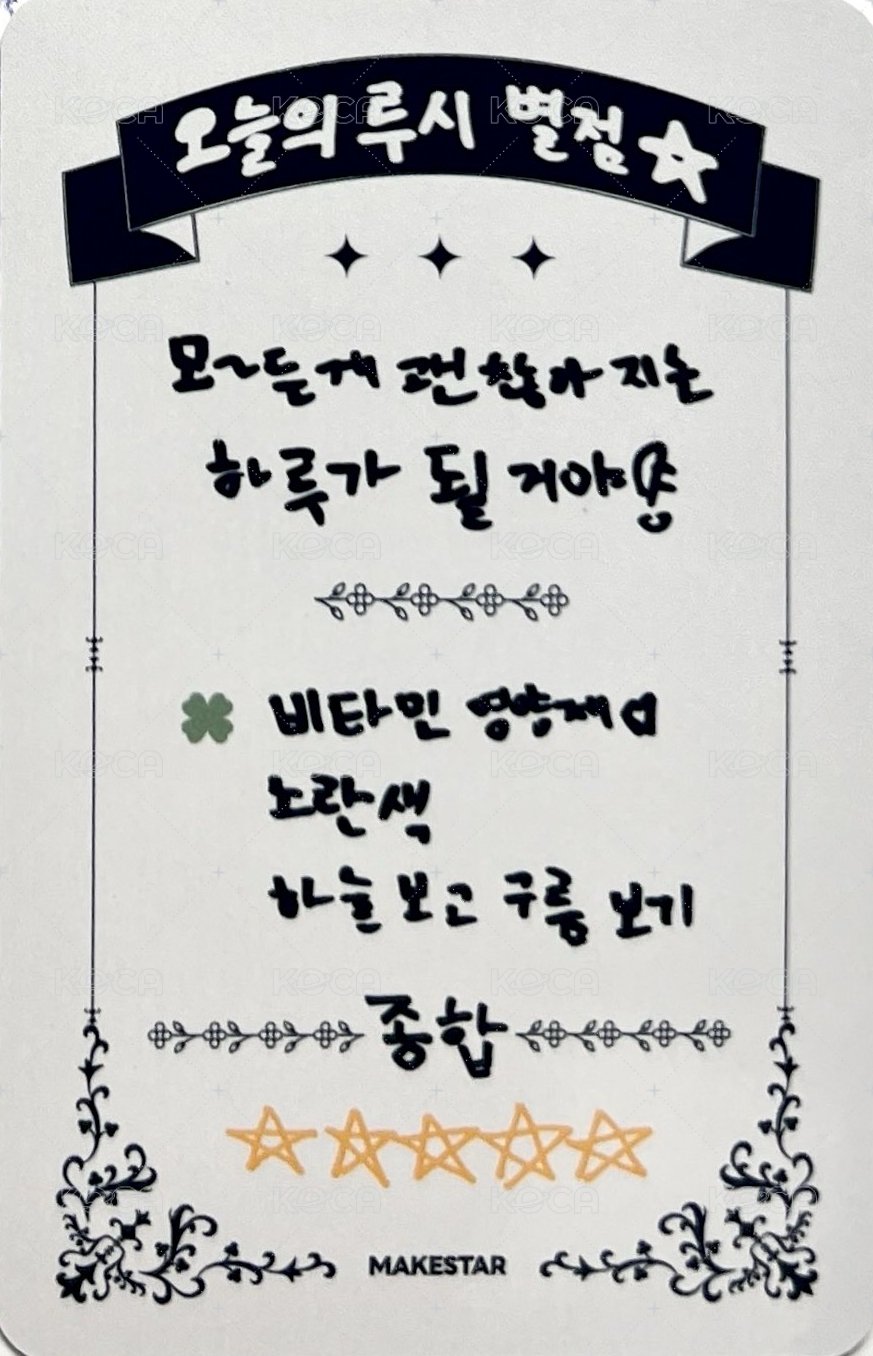 오늘의 루시 별점 ☆
모~든게 괜찮아 지는
하루가 될 거야
비타민 영양제
노란색
하늘 보고 구름 보기
종합
MAKESTAR